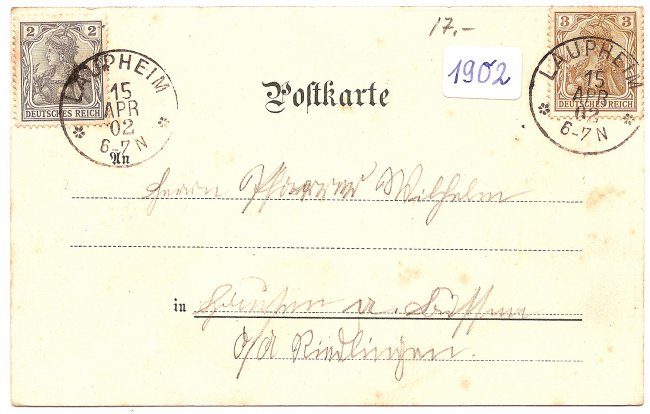 17,-
2 2
DEUTSCHES REICH
3 3
DEUTSCHES REICH
LAUPHEIM
15
APR
02
6-7 N
Postkarte
1902
LAUPHEIM
15
APR
02
6-7 N
An
Herrn Pfarrer Wilhelm
in
Riedlingen.